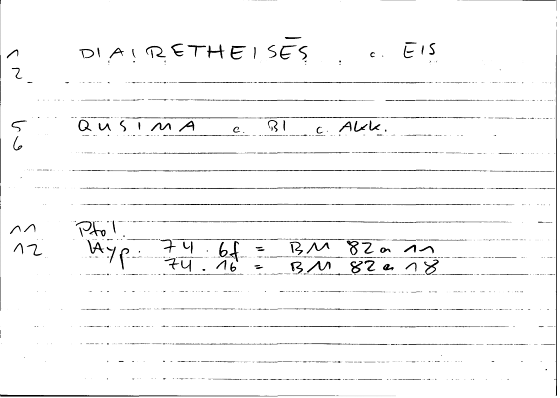 1 DIAIRETHEISĒS . c. EIS
2
5 QUSIMA c. BI c. Akk.
6
11 Ptol.
12 Hyp. 74.6f = BM 82a 11
74.16 = BM 82a 18